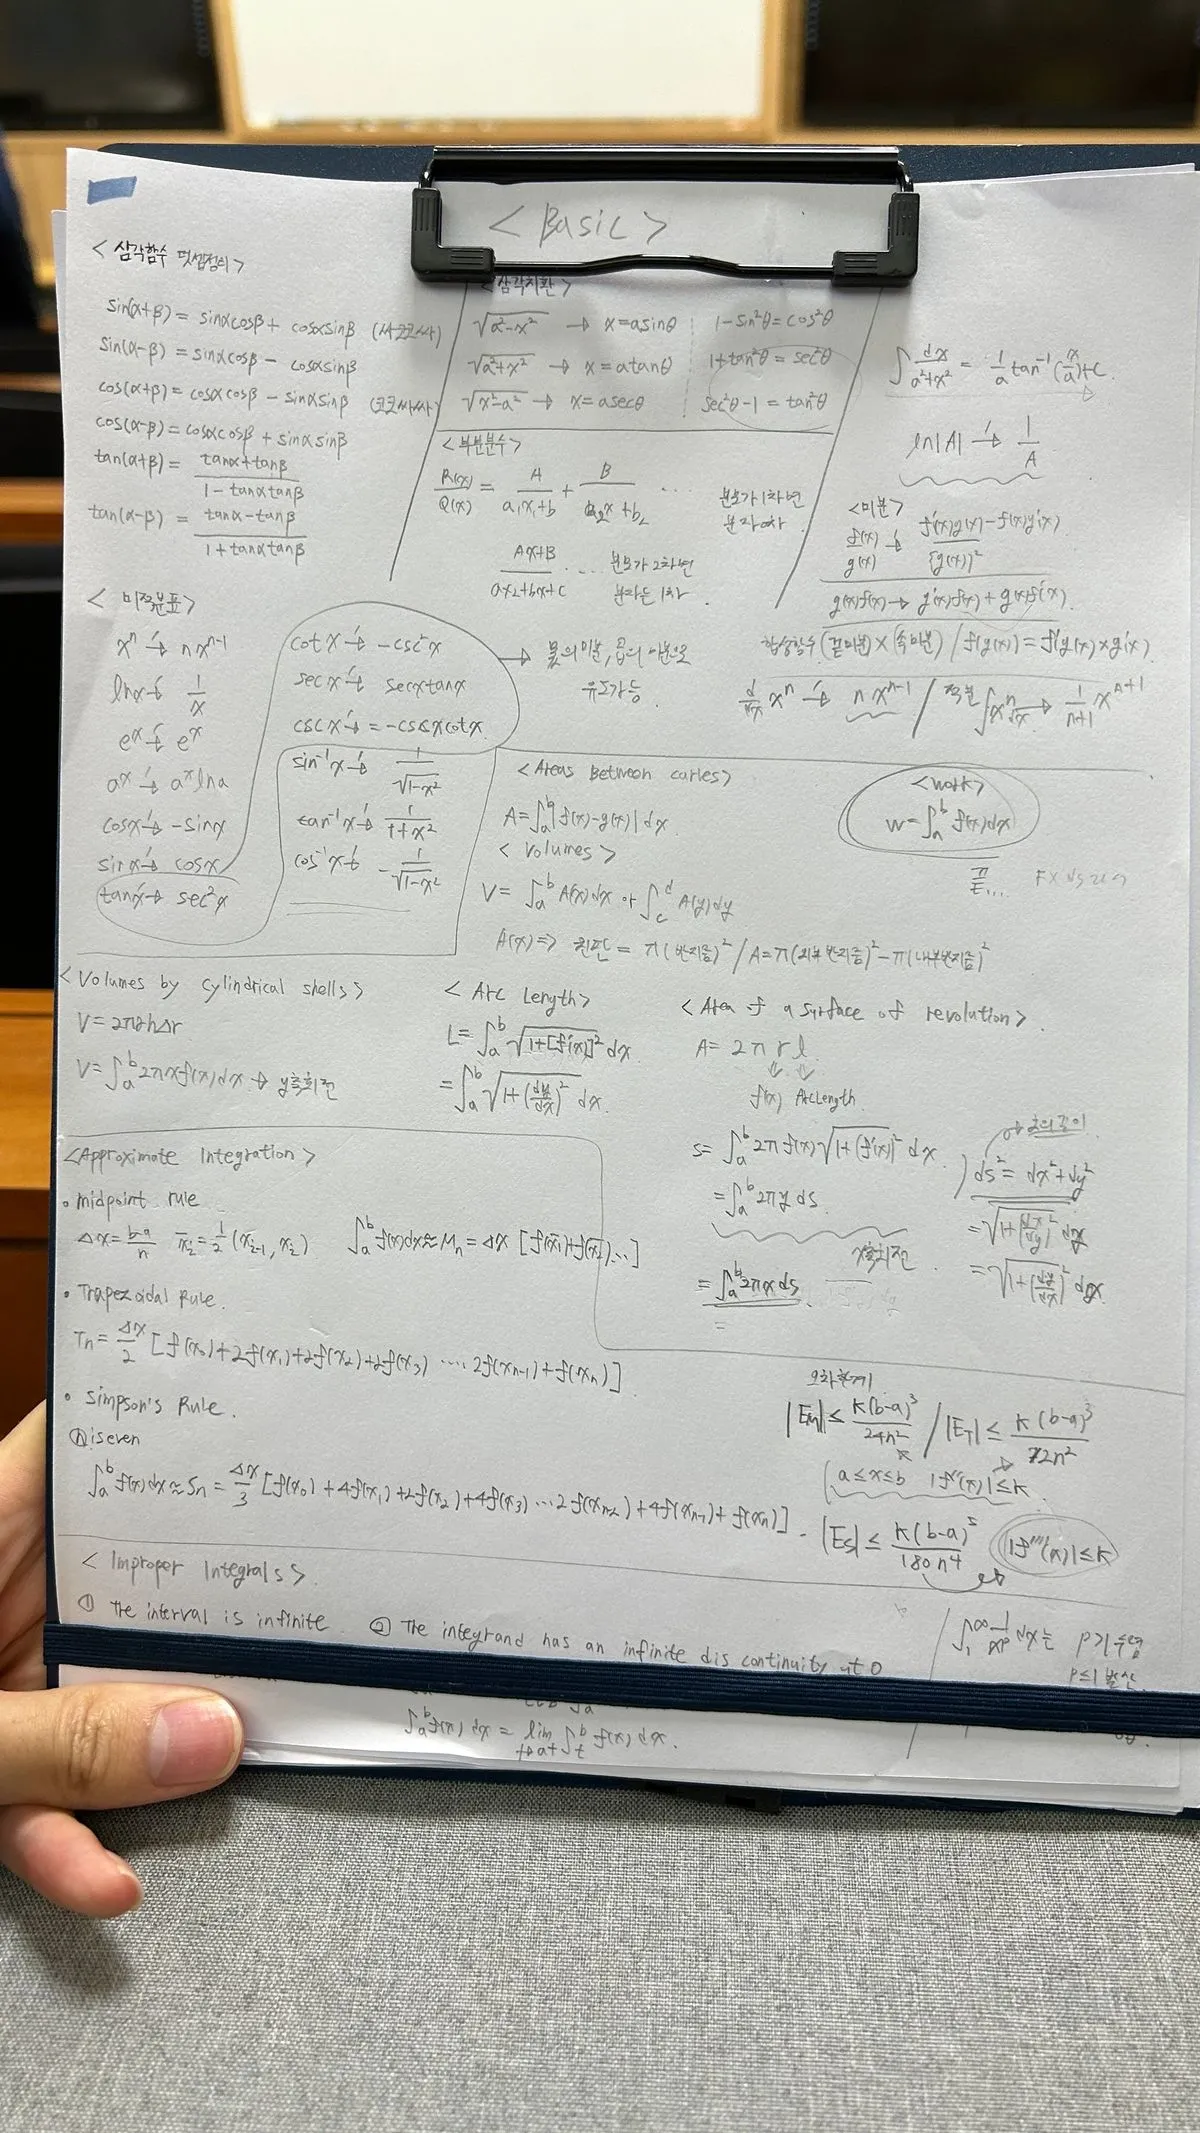 < Basic >
< 삼각함수 덧셈정리 >
sin(α+β) = sinαcosβ + cosαsinβ (싸코코싸)
sin(α-β) = sinαcosβ - cosαsinβ
cos(α+β) = cosαcosβ - sinαsinβ (코코싸싸)
cos(α-β) = cosαcosβ + sinαsinβ
tan(α+β) = (tanα+tanβ)/(1-tanαtanβ)
tan(α-β) = (tanα-tanβ)/(1+tanαtanβ)
<삼각치환>
√(a²-x²) → x=asinθ 1-sin²θ=cos²θ
√(a²+x²) → x=atanθ 1+tan²θ=sec²θ
√(x²-a²) → x=asecθ sec²θ-1=tan²θ
<부분분수>
R(x)/Q(x) = A/(a₁x₁+b) + B/(a₂x+b₂) ... 분모가 1차면
분자 0차
(Ax+B)/(ax₂+bx+c) ... 분모가 2차면
분자는 1차.
∫dx/(a²+x²) = 1/a tan⁻¹(x/a)+C
ln|A| →′ 1/A
<미분>
f(x)/g(x) →′ (f′(x)g(x)-f(x)g′(x))/{g(x)}²
g(x)f(x) → g′(x)f(x)+g(x)f′(x)
합성함수 (겉미분)×(속미분) / f(g(x)) = f′(g(x))×g′(x)
d/dx xⁿ →′ nxⁿ⁻¹ / 적분 ∫xⁿdx → 1/(n+1) xⁿ⁺¹
< 미적분표 >
xⁿ →′ nxⁿ⁻¹
lnx →′ 1/x
eˣ →′ eˣ
aˣ →′ aˣlna
cosx →′ -sinx
sinx →′ cosx
tanx →′ sec²x
cotx →′ -csc²x
secx →′ secxtanx
cscx →′ = -cscxcotx
→ 몫의 미분, 곱의 미분으로
유도가능
sin⁻¹x →′ 1/√(1-x²)
tan⁻¹x →′ 1/(1+x²)
cos⁻¹x →′ -1/√(1-x²)
<Areas Between curles>
A=∫ₐᵇ|f(x)-g(x)|dx
< Volumes >
V=∫ₐᵇA(x)dx or ∫c^d A(y)dy
A(x) ⇒ 원판 = π(반지름)² / A=π(외부반지름)²-π(내부반지름)²
<Work>
W=∫ₐᵇf(x)dx
<Volumes by cylindrical shells>
V=2πrhΔr
V=∫ₐᵇ2πxf(x)dx → y축회전
< Arc Length>
L=∫ₐᵇ√(1+[f′(x)]²)dx
=∫ₐᵇ√(1+(dy/dx)²)dx.
<Area of a surface of revolution>
A= 2πrl.
f(x) ArcLength
S=∫ₐᵇ2πf(x)√(1+(f′(x))²)dx.
=∫ₐᵇ2πy ds
x축회전
=∫ₐᵇ2πx ds
=
호의 길이
ds²=dx²+dy²
=√(1+(dx/dy)²)dy
=√(1+(dy/dx)²)dx
<Approximate Integration>
• midpoint rule
Δx=(b-a)/n x̄ᵢ=1/2(xᵢ₋₁, xᵢ) ∫ₐᵇf(x)dx≈Mₙ=Δx [f(x̄₁)+f(x̄₂)...]
• Trapezoidal Rule.
Tn=Δx/2 [f(x₀)+2f(x₁)+2f(x₂)+2f(x₃) .... 2f(xₙ₋₁)+f(xₙ)].
• Simpson's Rule.
ⓝ is even
∫ₐᵇf(x)dx≈Sₙ=Δx/3 [f(x₀)+4f(x₁)+2f(x₂)+4f(x₃) ... 2f(xₙ₋₂)+4f(xₙ₋₁)+f(xₙ)].
|Em| ≤ K(b-a)³/24n² / |ET| ≤ K(b-a)³/12n²
a≤x≤b |f″(x)|≤K.
|Es| ≤ K(b-a)⁵/180n⁴ |f⁗(x)|≤K
< Improper Integrals>.
① The interval is infinite. ② The integrand has an infinite discontinuity at 0
∫₁^∞ 1/xᵖ dx는
p≤1 발산.
∫ₐᵇf(x)dx = lim t→a+ ∫ₜᵇ f(x)dx.